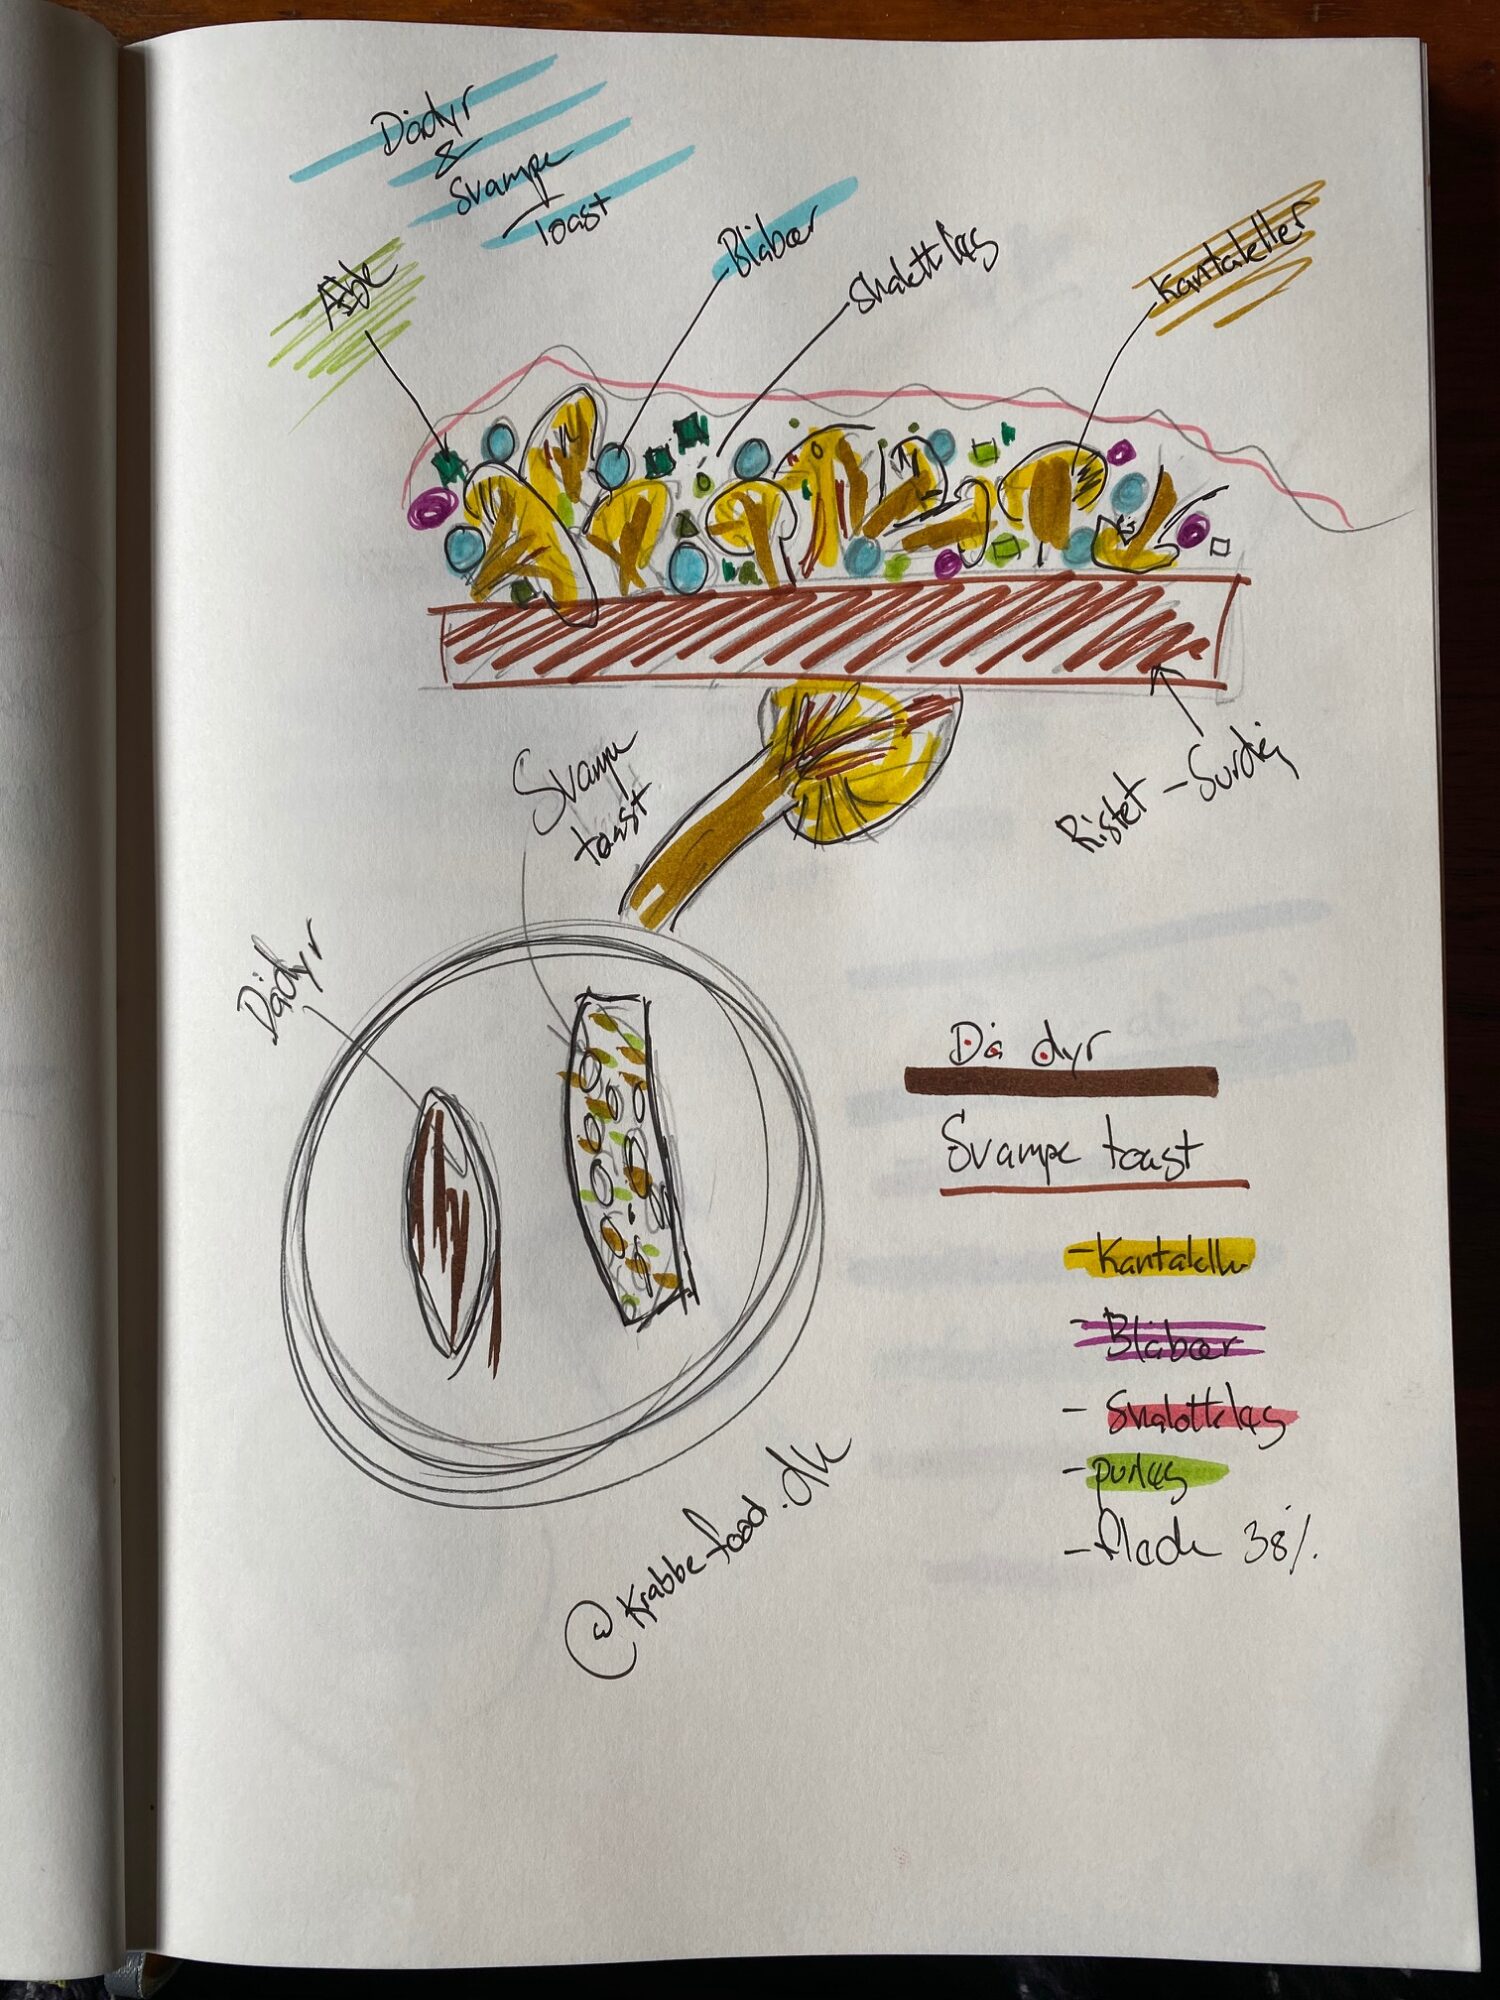 Dådyr
&
Svampe
Toast
Æble
Blåbær
Skalottløg
Kantareller
Ristet - Surdej
Svampe
toast
Dådyr
Då dyr
Svampe toast
- Kantareller
- Blåbær
- Skalotteløg
- purløg
- fløde 38%
@Krabbefood.dk